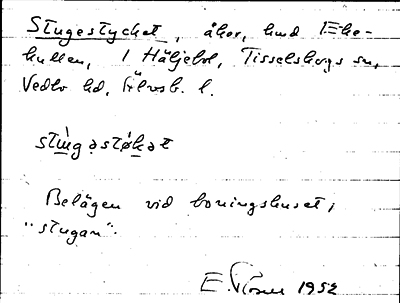 Stugestycket, åker, hmd 1 Eke-
kullen, 1 Häljebol, Tisselskogs sn,
Vedbo hd, Älvsb. l.
stùgəstøkət
Belägen vid boningshuset,
"stugan".
E. 1952